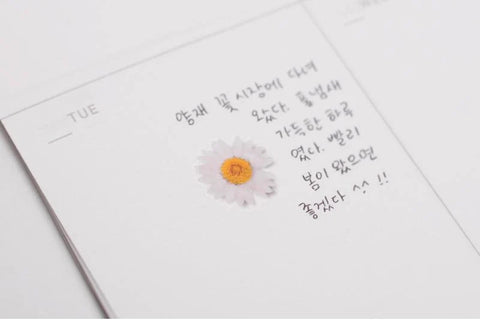 TUE
양재 꽃시장에 다녀
왔다. 풀냄새
가득한 하루
였다. 빨리
봄이 왔으면
좋겠다 ^^ !!